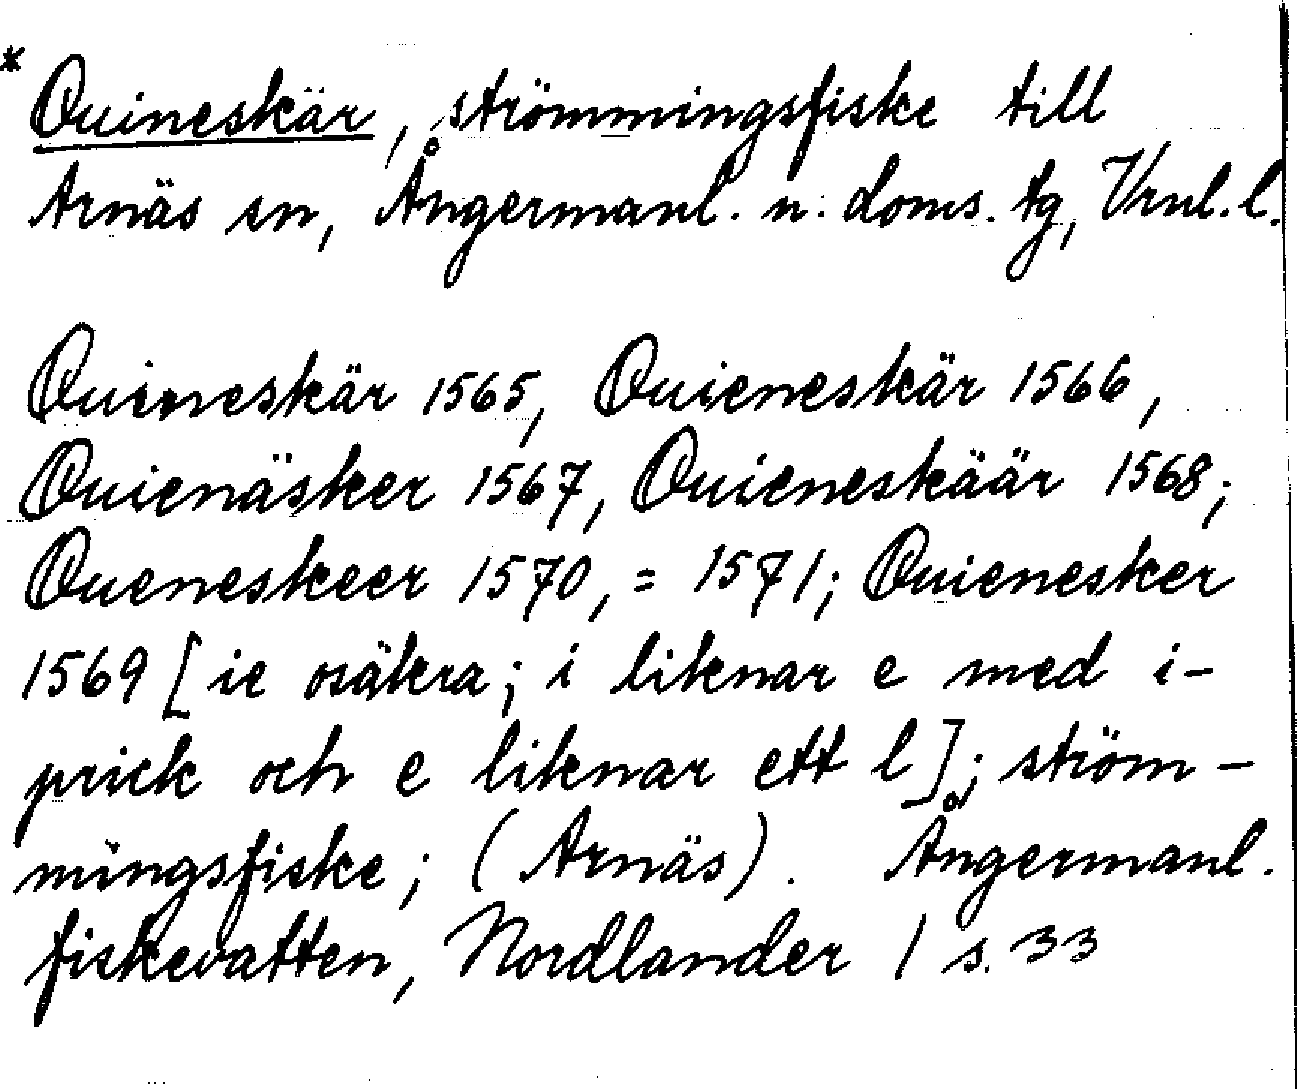 * Quineskär, strömmingsfiske till
Arnäs sn, Ångermanl. n. doms. tg, Vrnl. l.
Quineskär 1565, Quieneskär 1566,
Quienäsker 1567, Quieneskäär 1568;
Queneskeer 1570, = 1571; Quienesker
1569 [ie osäkra; i liknar e med i-
prick och e liknar ett l]; ström-
mingsfiske; (Arnäs). Ångermanl.
fiskevatten, Nordlander 1 s. 33